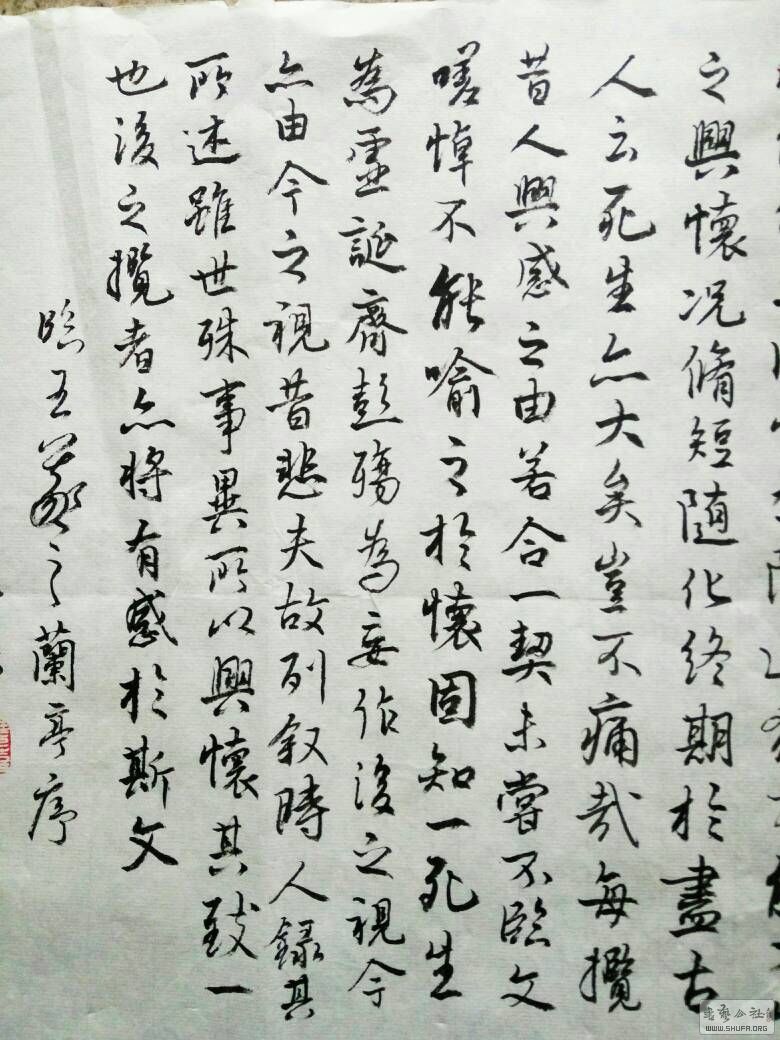 之興懷況脩短隨化終期於盡古
人云死生亦大矣豈不痛哉每攬
昔人興感之由若合一契未嘗不臨文
嗟悼不能喻之於懷固知一死生
為虛誕齊彭殤為妄作後之視今
亦由今之視昔悲夫故列叙時人錄其
所述雖世殊事異所以興懷其致一
也後之攬者亦將有感於斯文
臨王羲之蘭亭序
書藝公社
WWW.SHUFA.ORG